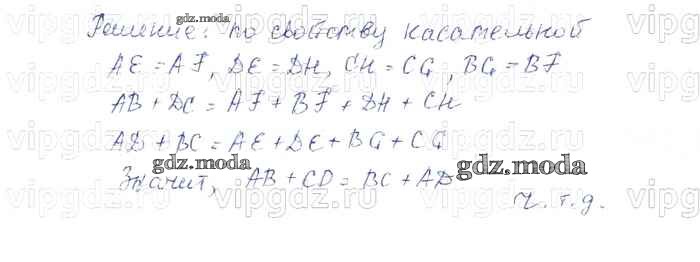 Решение: по свойству касательной
AE = AF, DE = DH, CH = CG, BG = BF
AB + DC = AF + BF + DH + CH
AD + BC = AE + DE + BG + CG
Значит, AB + CD = BC + AD
ч.т.д.
gdz.moda
gdz.moda
gdz.moda
vipgdz.ru